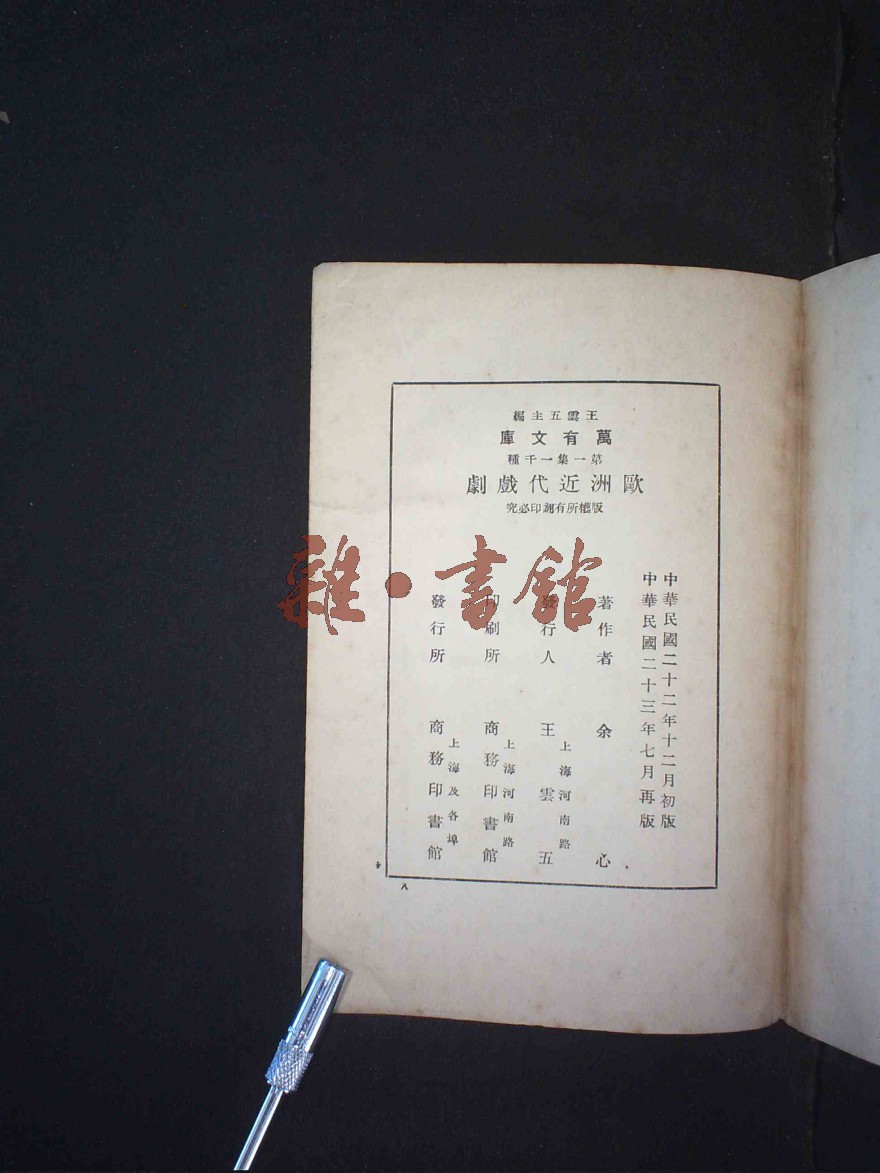 王雲五主編
萬有文庫
第一集一千種
歐洲近代戲劇
版權所有翻印必究
中華民國二十二年十二月初版
中華民國二十三年七月再版
著作者 余心
發行人 王雲五
上海河南路
印刷所 商務印書館
上海河南路
發行所 商務印書館
上海及各埠
八
雜·書館